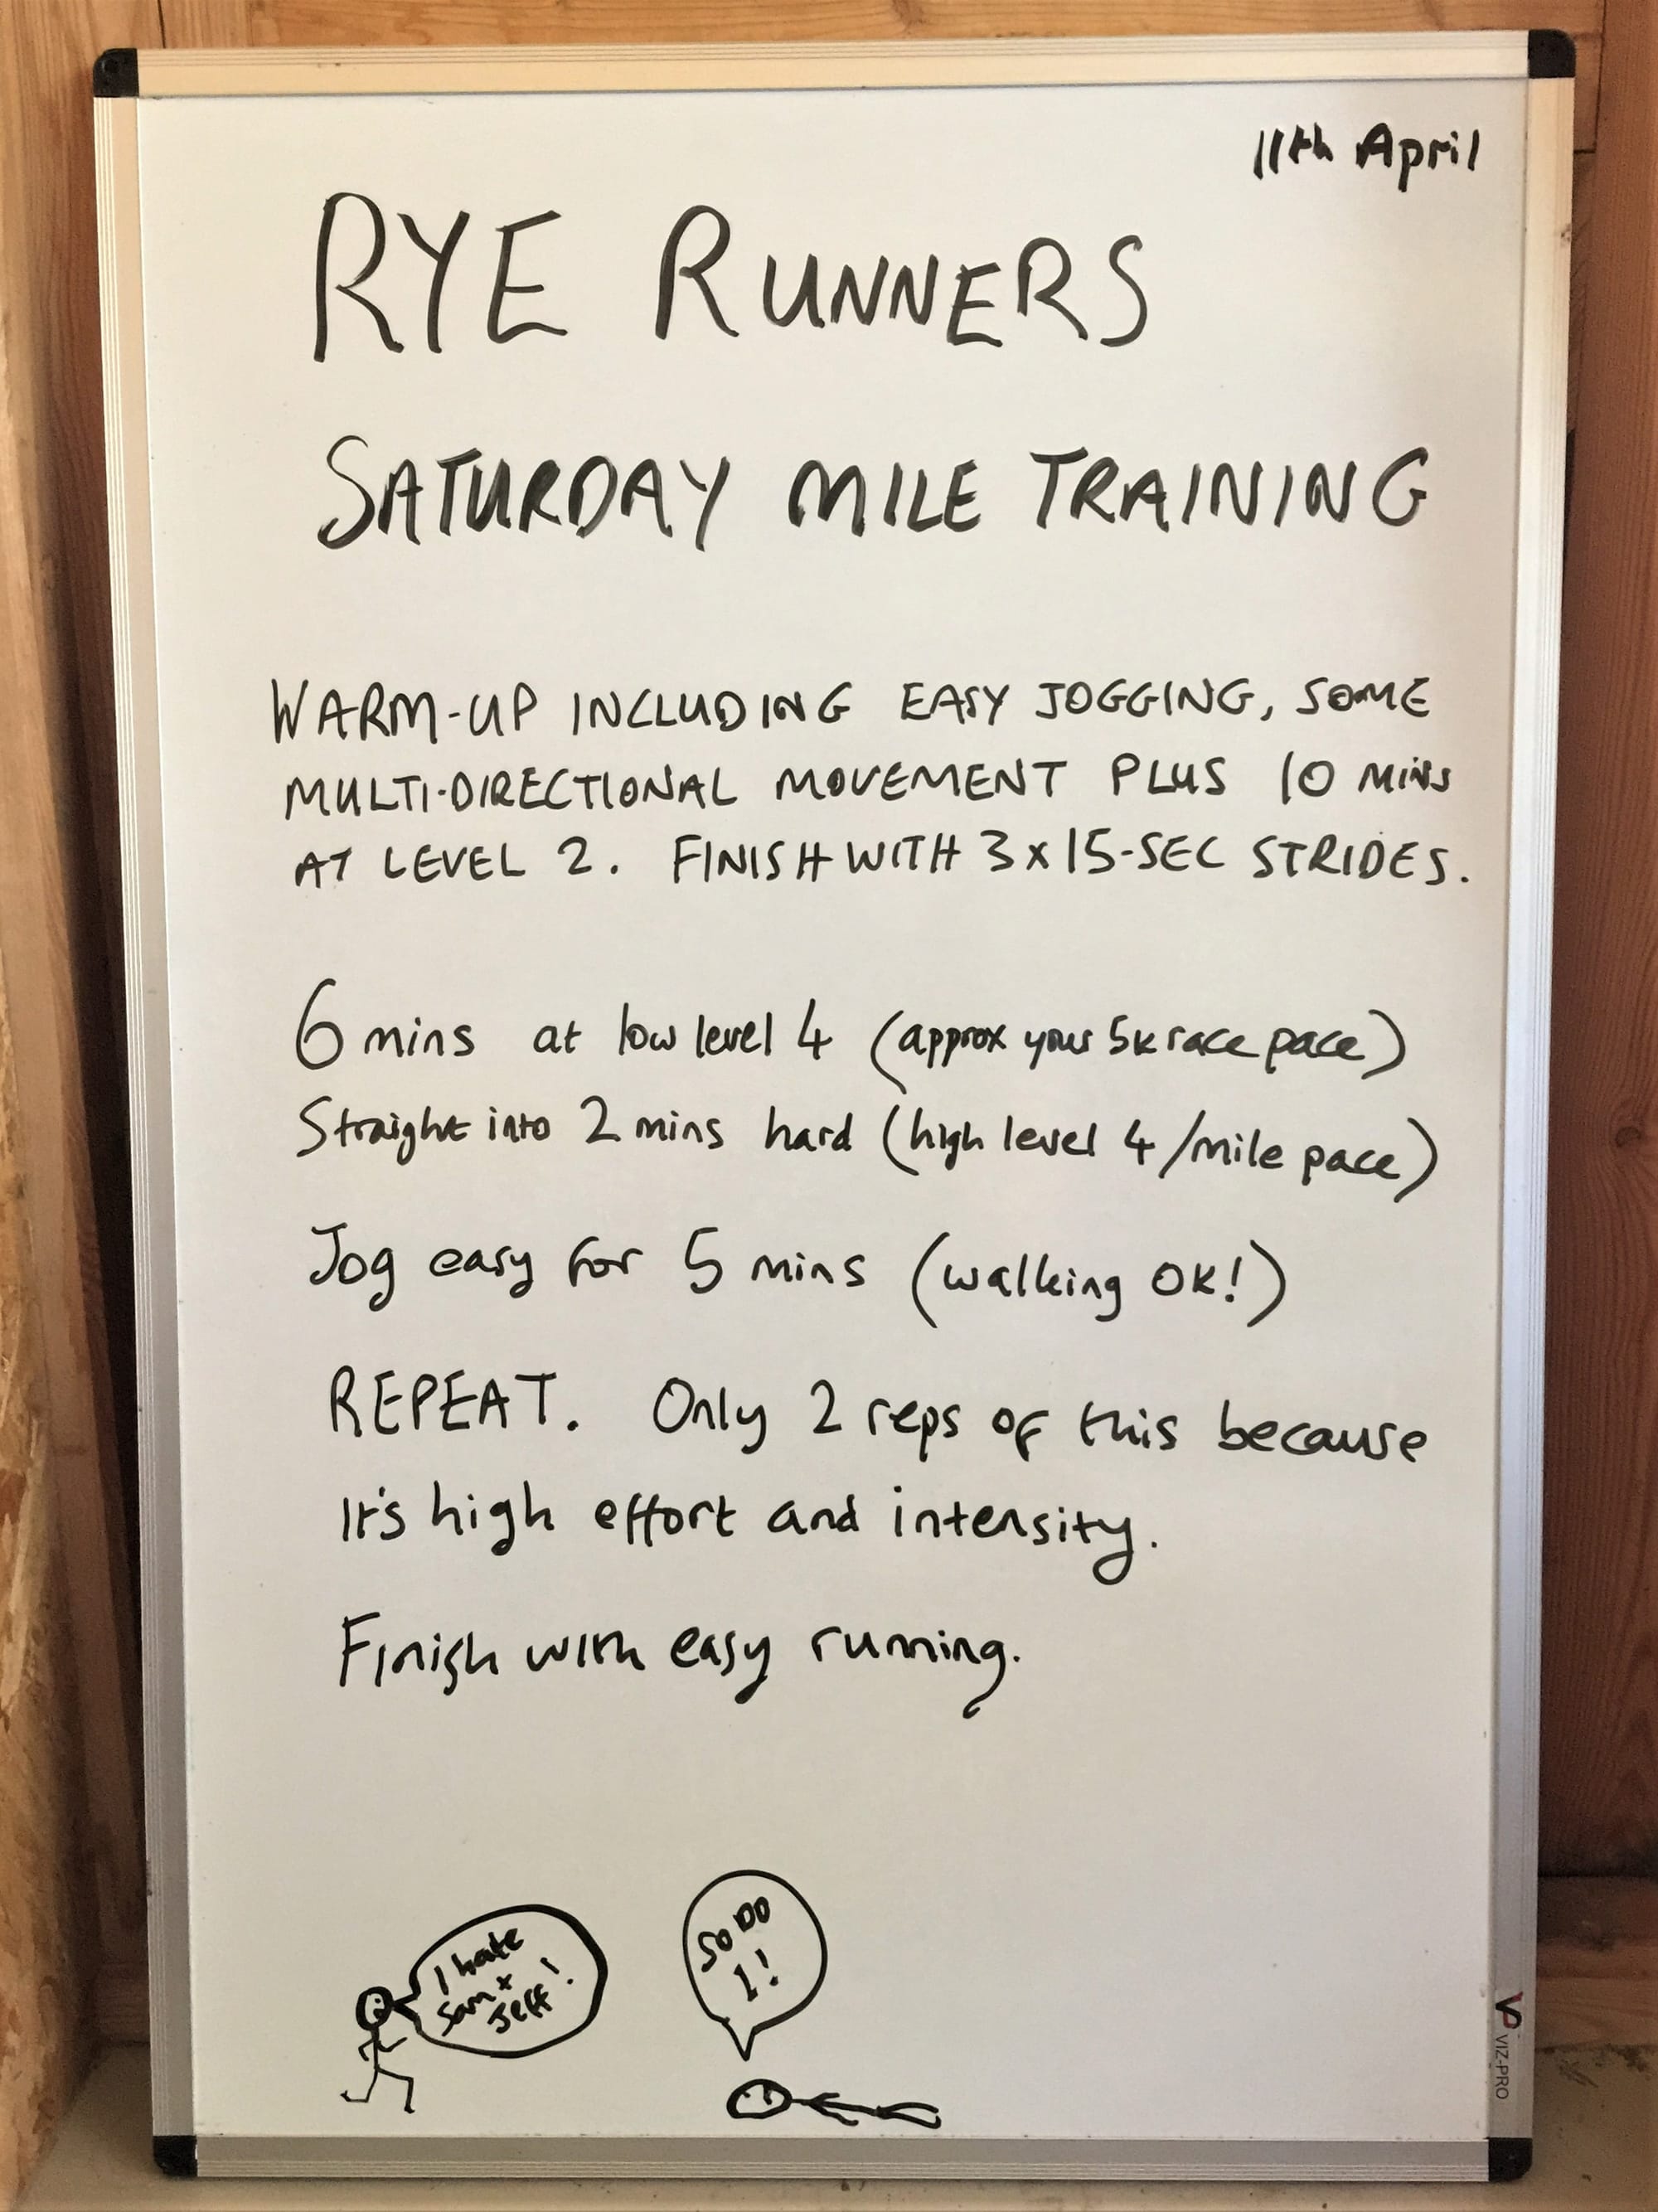 11th April
RYE RUNNERS
SATURDAY MILE TRAINING
WARM-UP INCLUDING EASY JOGGING, SOME
MULTI-DIRECTIONAL MOVEMENT PLUS 10 MINS
AT LEVEL 2. FINISH WITH 3 x 15-SEC STRIDES.
6 mins at low level 4 (approx your 5k race pace)
Straight into 2 mins hard (high level 4/mile pace)
Jog easy for 5 mins (walking OK!)
REPEAT. Only 2 reps of this because
it's high effort and intensity.
Finish with easy running.
I hate
Sam +
Jeff!
SO DO
I!
VP VIZ-PRO